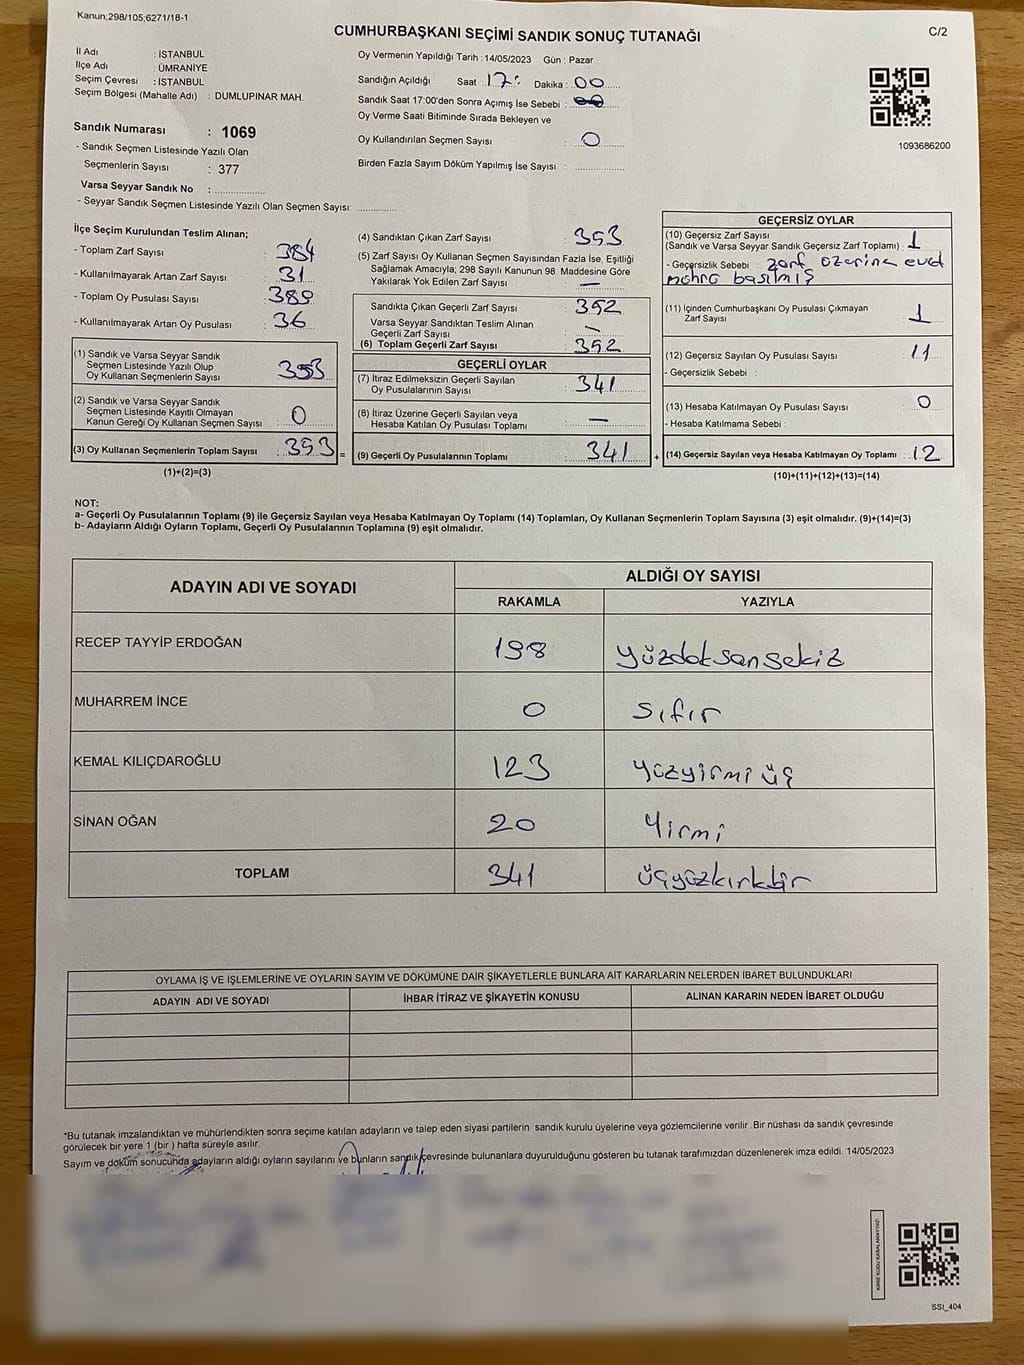 Kanun;298/105;6271/18-1
CUMHURBAŞKANI SEÇİMİ SANDIK SONUÇ TUTANAĞI
C/2
İl Adı : İSTANBUL
İlçe Adı : ÜMRANİYE
Seçim Çevresi : İSTANBUL
Seçim Bölgesi (Mahalle Adı) : DUMLUPINAR MAH.
Sandık Numarası : 1069
- Sandık Seçmen Listesinde Yazılı Olan
Seçmenlerin Sayısı : 377
Varsa Seyyar Sandık No :
- Seyyar Sandık Seçmen Listesinde Yazılı Olan Seçmen Sayısı:
Oy Vermenin Yapıldığı Tarih : 14/05/2023 Gün : Pazar
Sandığın Açıldığı Saat 17: Dakika : 00
Sandık Saat 17:00'den Sonra Açımış İse Sebebi :
Oy Verme Saati Bitiminde Sırada Bekleyen ve
Oy Kullandırılan Seçmen Sayısı : 0
Birden Fazla Sayım Döküm Yapılmış İse Sayısı :
1093686200
İlçe Seçim Kurulundan Teslim Alınan;
- Toplam Zarf Sayısı 384
- Kullanılmayarak Artan Zarf Sayısı 31
- Toplam Oy Pusulası Sayısı 389
- Kullanılmayarak Artan Oy Pusulası : 36
(1) Sandık ve Varsa Seyyar Sandık
Seçmen Listesinde Yazılı Olup
Oy Kullanan Seçmenlerin Sayısı 353
(2) Sandık ve Varsa Seyyar Sandık
Seçmen Listesinde Kayıtlı Olmayan
Kanun Gereği Oy Kullanan Seçmen Sayısı : 0
(3) Oy Kullanan Seçmenlerin Toplam Sayısı : 353 =
(1)+(2)=(3)
(4) Sandıktan Çıkan Zarf Sayısı : 353
(5) Zarf Sayısı Oy Kullanan Seçmen Sayısından Fazla İse, Eşitliği
Sağlamak Amacıyla; 298 Sayılı Kanunun 98. Maddesine Göre
Yakılarak Yok Edilen Zarf Sayısı : —
Sandıkta Çıkan Geçerli Zarf Sayısı : 352
Varsa Seyyar Sandıktan Teslim Alınan
Geçerli Zarf Sayısı : —
(6) Toplam Geçerli Zarf Sayısı : 352
GEÇERLİ OYLAR
(7) İtiraz Edilmeksizin Geçerli Sayılan
Oy Pusulalarının Sayısı : 341
(8) İtiraz Üzerine Geçerli Sayılan veya
Hesaba Katılan Oy Pusulası Toplamı : —
(9) Geçerli Oy Pusulalarının Toplamı : 341 +
GEÇERSİZ OYLAR
(10) Geçersiz Zarf Sayısı
(Sandık ve Varsa Seyyar Sandık Geçersiz Zarf Toplamı) : 1
- Geçersizlik Sebebi : zarf üzerine evet
mühro basılmış
(11) İçinden Cumhurbaşkanı Oy Pusulası Çıkmayan
Zarf Sayısı : 1
(12) Geçersiz Sayılan Oy Pusulası Sayısı : 11
- Geçersizlik Sebebi :
(13) Hesaba Katılmayan Oy Pusulası Sayısı : 0
- Hesaba Katılmama Sebebi :
(14) Geçersiz Sayılan veya Hesaba Katılmayan Oy Toplamı : 12
(10)+(11)+(12)+(13)=(14)
NOT:
a- Geçerli Oy Pusulalarının Toplamı (9) ile Geçersiz Sayılan veya Hesaba Katılmayan Oy Toplamı (14) Toplamları, Oy Kullanan Seçmenlerin Toplam Sayısına (3) eşit olmalıdır. (9)+(14)=(3)
b- Adayların Aldığı Oyların Toplamı, Geçerli Oy Pusulalarının Toplamına (9) eşit olmalıdır.
ADAYIN ADI VE SOYADI
ALDIĞI OY SAYISI
RAKAMLA YAZIYLA
RECEP TAYYİP ERDOĞAN 198 Yüzdoksansekiz
MUHARREM İNCE 0 Sıfır
KEMAL KILIÇDAROĞLU 123 Yüzyirmi üç
SİNAN OĞAN 20 Yirmi
TOPLAM 341 Üçyüzkırkbir
OYLAMA İŞ VE İŞLEMLERİNE VE OYLARIN SAYIM VE DÖKÜMÜNE DAİR ŞİKAYETLERLE BUNLARA AİT KARARLARIN NELERDEN İBARET BULUNDUKLARI
ADAYIN ADI VE SOYADI İHBAR İTİRAZ VE ŞİKAYETİN KONUSU ALINAN KARARIN NEDEN İBARET OLDUĞU
*Bu tutanak imzalandıktan ve mühürlendikten sonra seçime katılan adayların ve talep eden siyasi partilerin sandık kurulu üyelerine veya gözlemcilerine verilir .Bir nüshası da sandık çevresinde
görülecek bir yere 1 (bir ) hafta süreyle asılır.
Sayım ve döküm sonucunda adayların aldığı oyların sayılarını ve bunların sandık çevresinde bulunanlara duyurulduğunu gösteren bu tutanak tarafımızdan düzenlenerek imza edildi. 14/05/2023
KARE KODU KARALAMAYINIZ!
SSİ_404